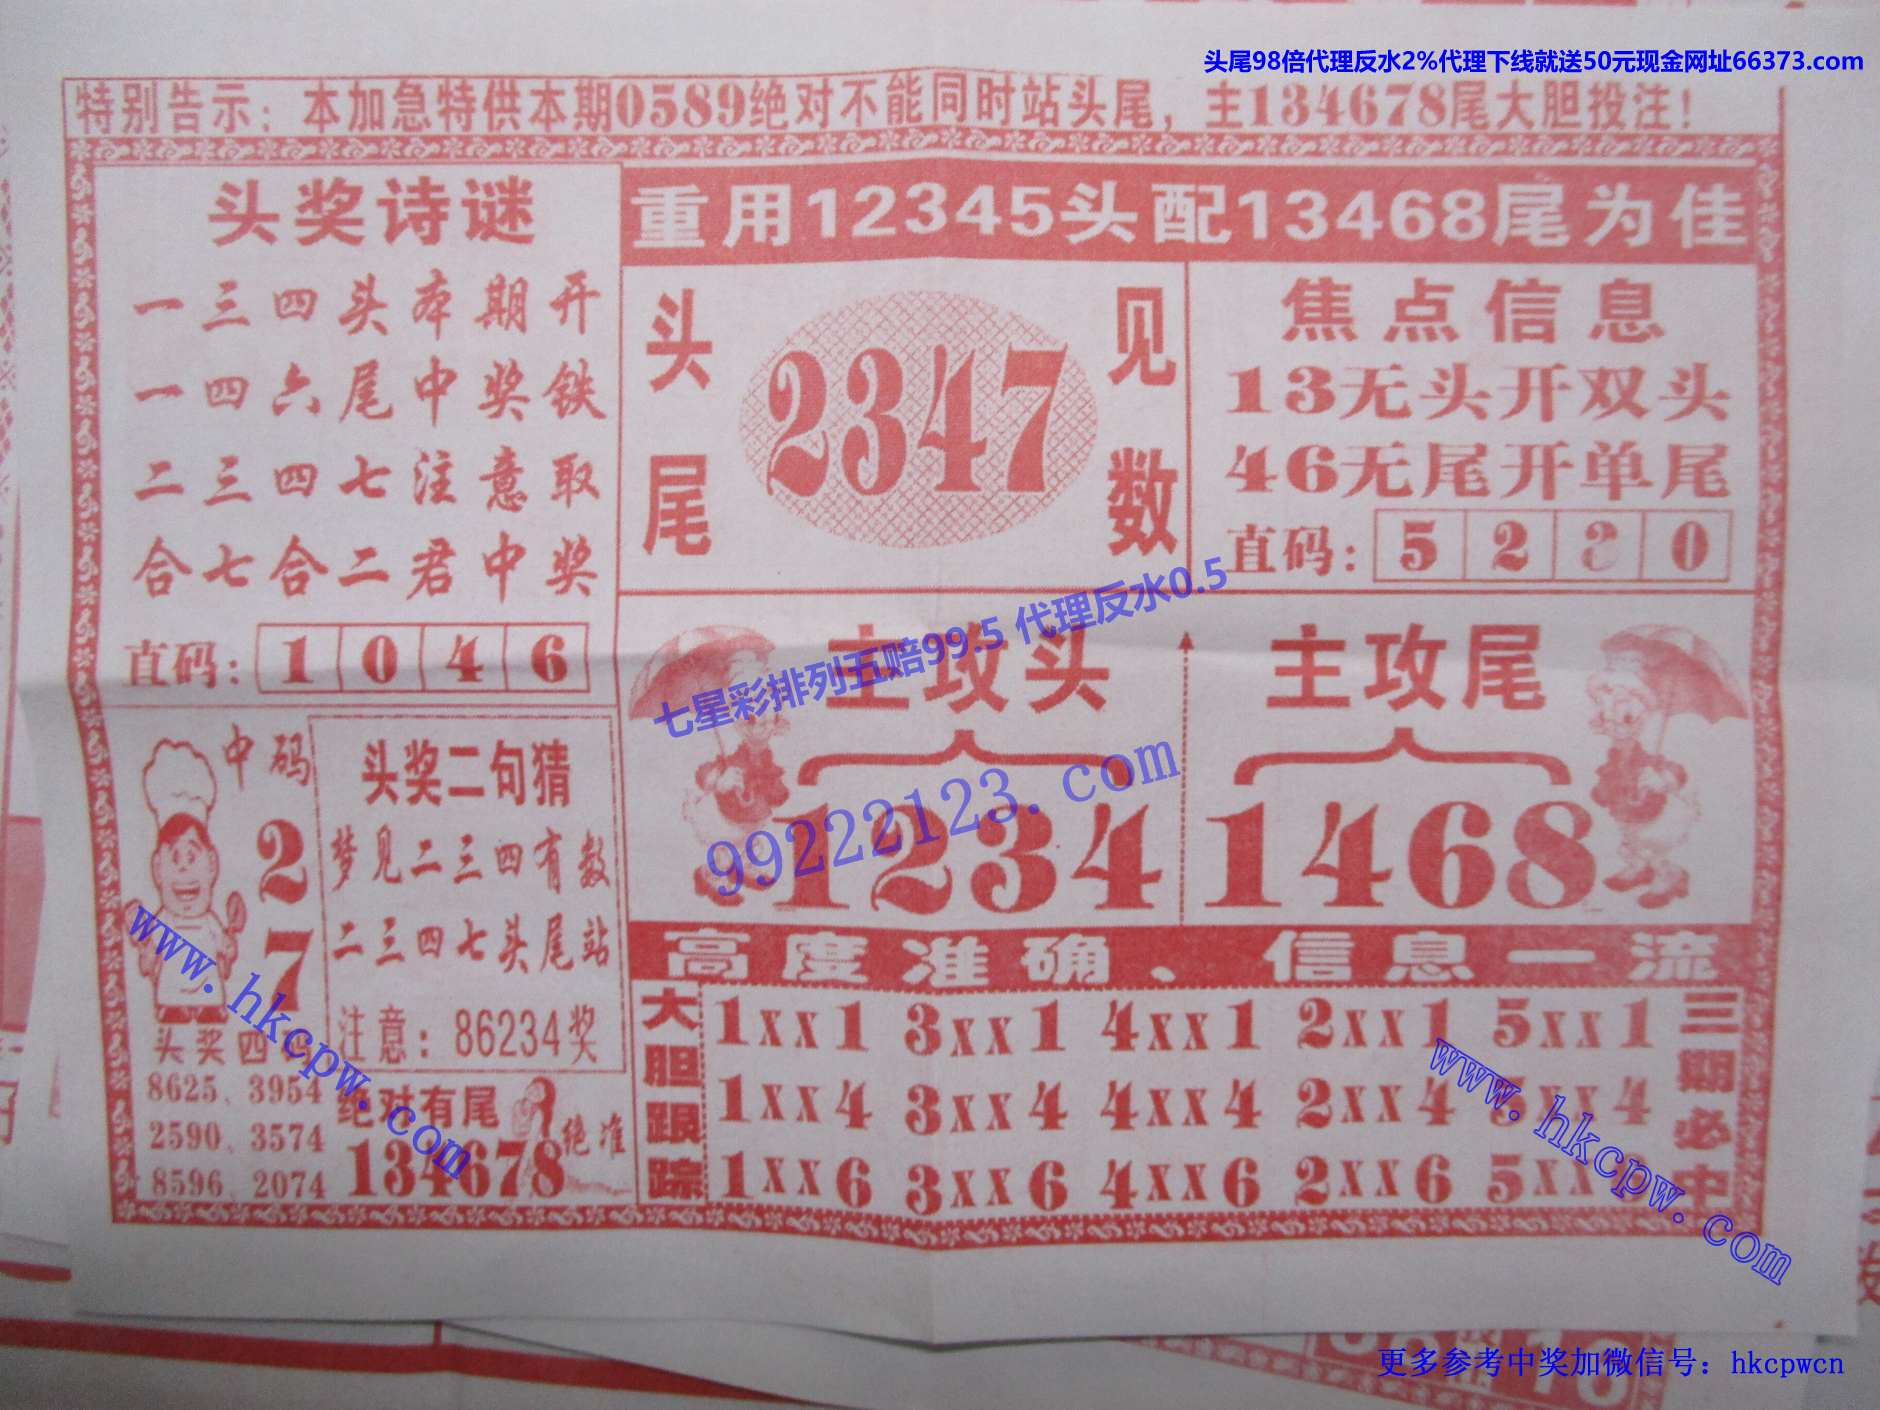 头尾98倍代理反水2%代理下线就送50元现金网址66373.com
特别告示：本加急特供本期0589绝对不能同时站头尾，主134678尾大胆投注！
头奖诗谜
一三四头本期开
一四六尾中奖铁
二三四七注意取
合七合二君中奖
直码：1 0 4 6
重用12345头配13468尾为佳
头尾
2347
见数
焦点信息
13无头开双头
46无尾开单尾
直码：5 2 8 0
主攻头
1234
主攻尾
1468
七星彩排列五赔99.5 代理反水0.5
99222123.com
中码
2
7
头奖四码
8625、3954
2590、3574
8596、2074
头奖二句猜
梦见二三四有数
二三四七头尾站
注意：86234奖
绝对有尾
134678
绝准
高度准确、信息一流
大胆跟踪
1xx1 3xx1 4xx1 2xx1 5xx1
1xx4 3xx4 4xx4 2xx4 5xx4
1xx6 3xx6 4xx6 2xx6 5xx
三期必中
www.hkcpw.com
www.hkcpw.com
更多参考中奖加微信号：hkcpwcn